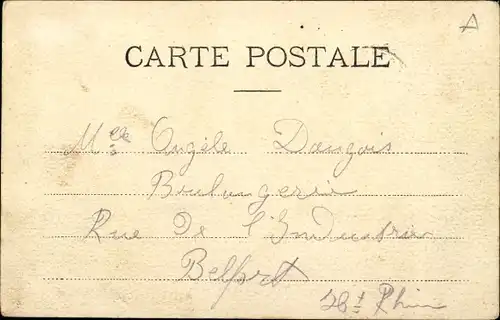 A
CARTE POSTALE
Melle Angèle
Boulangerie
Rue De l'Industrie
Belfort
Ht Rhin